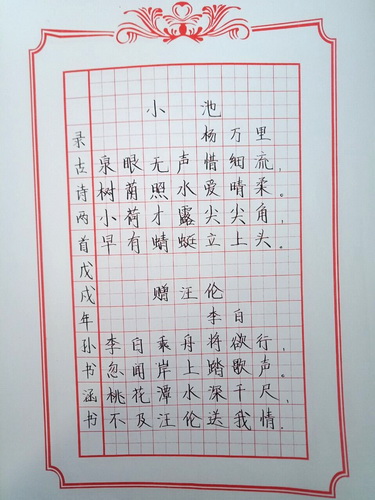 小池
杨万里
泉眼无声惜细流，
树荫照水爱晴柔。
小荷才露尖尖角，
早有蜻蜓立上头。
赠汪伦
李白
李白乘舟将欲行，
忽闻岸上踏歌声。
桃花潭水深千尺，
不及汪伦送我情。
录古诗两首戊戌年孙书涵书